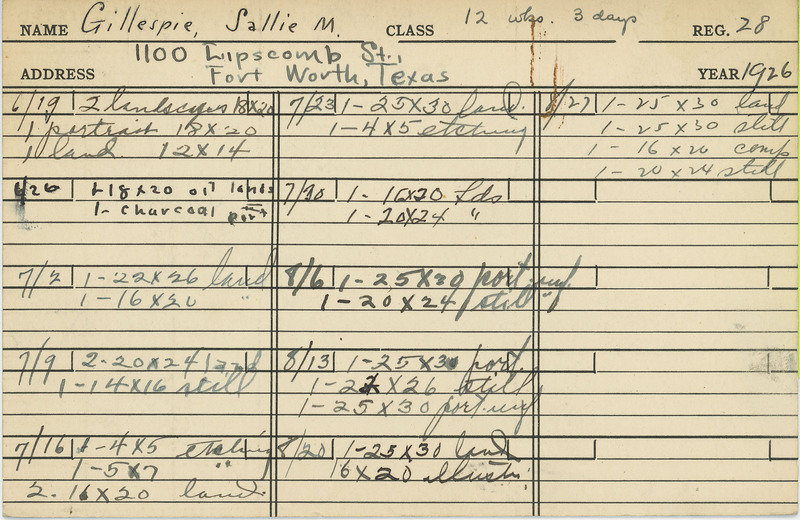 NAME Gillespie, Sallie M. CLASS 12 wks. 3 days REG. 28
1100 Lipscomb St.,
ADDRESS Fort Worth, Texas YEAR 1926
6/19 2 landscapes 18x20
1 portrait 18x20
1 land. 12x14
6/26 1-18x20 oil lands
1- charcoal port
7/2 1-22x26 land
1-16x20 "
7/9 2-20x24 land
1-14x16 still
7/16 1-4x5 etching
1-5x7 "
2. 16x20 land.
7/23 1-25x30 land.
1-4x5 etching
7/30 1-16x20 lds
1-20x24 "
8/6 1-25x30 port.
1-20x24 still
8/13 1-25x30 port.
1-22x26 still
1-25x30 port.
8/20 1-25x30 land
16x20 illustr.
8/27 1-25x30 land
1-25x30 still
1-16x20 comp
1-20x24 still